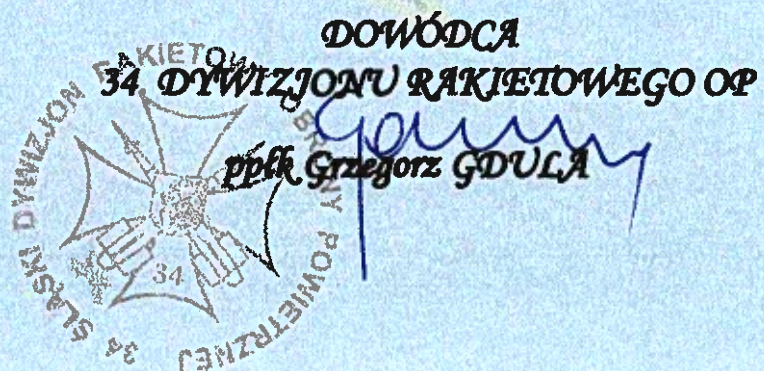 DOWÓDCA
34 DYWIZJONU RAKIETOWEGO OP
ppłk Grzegorz GDULA
34 ŚLĄSKI DYWIZJON RAKIETOWY OBRONY POWIETRZNEJ
34